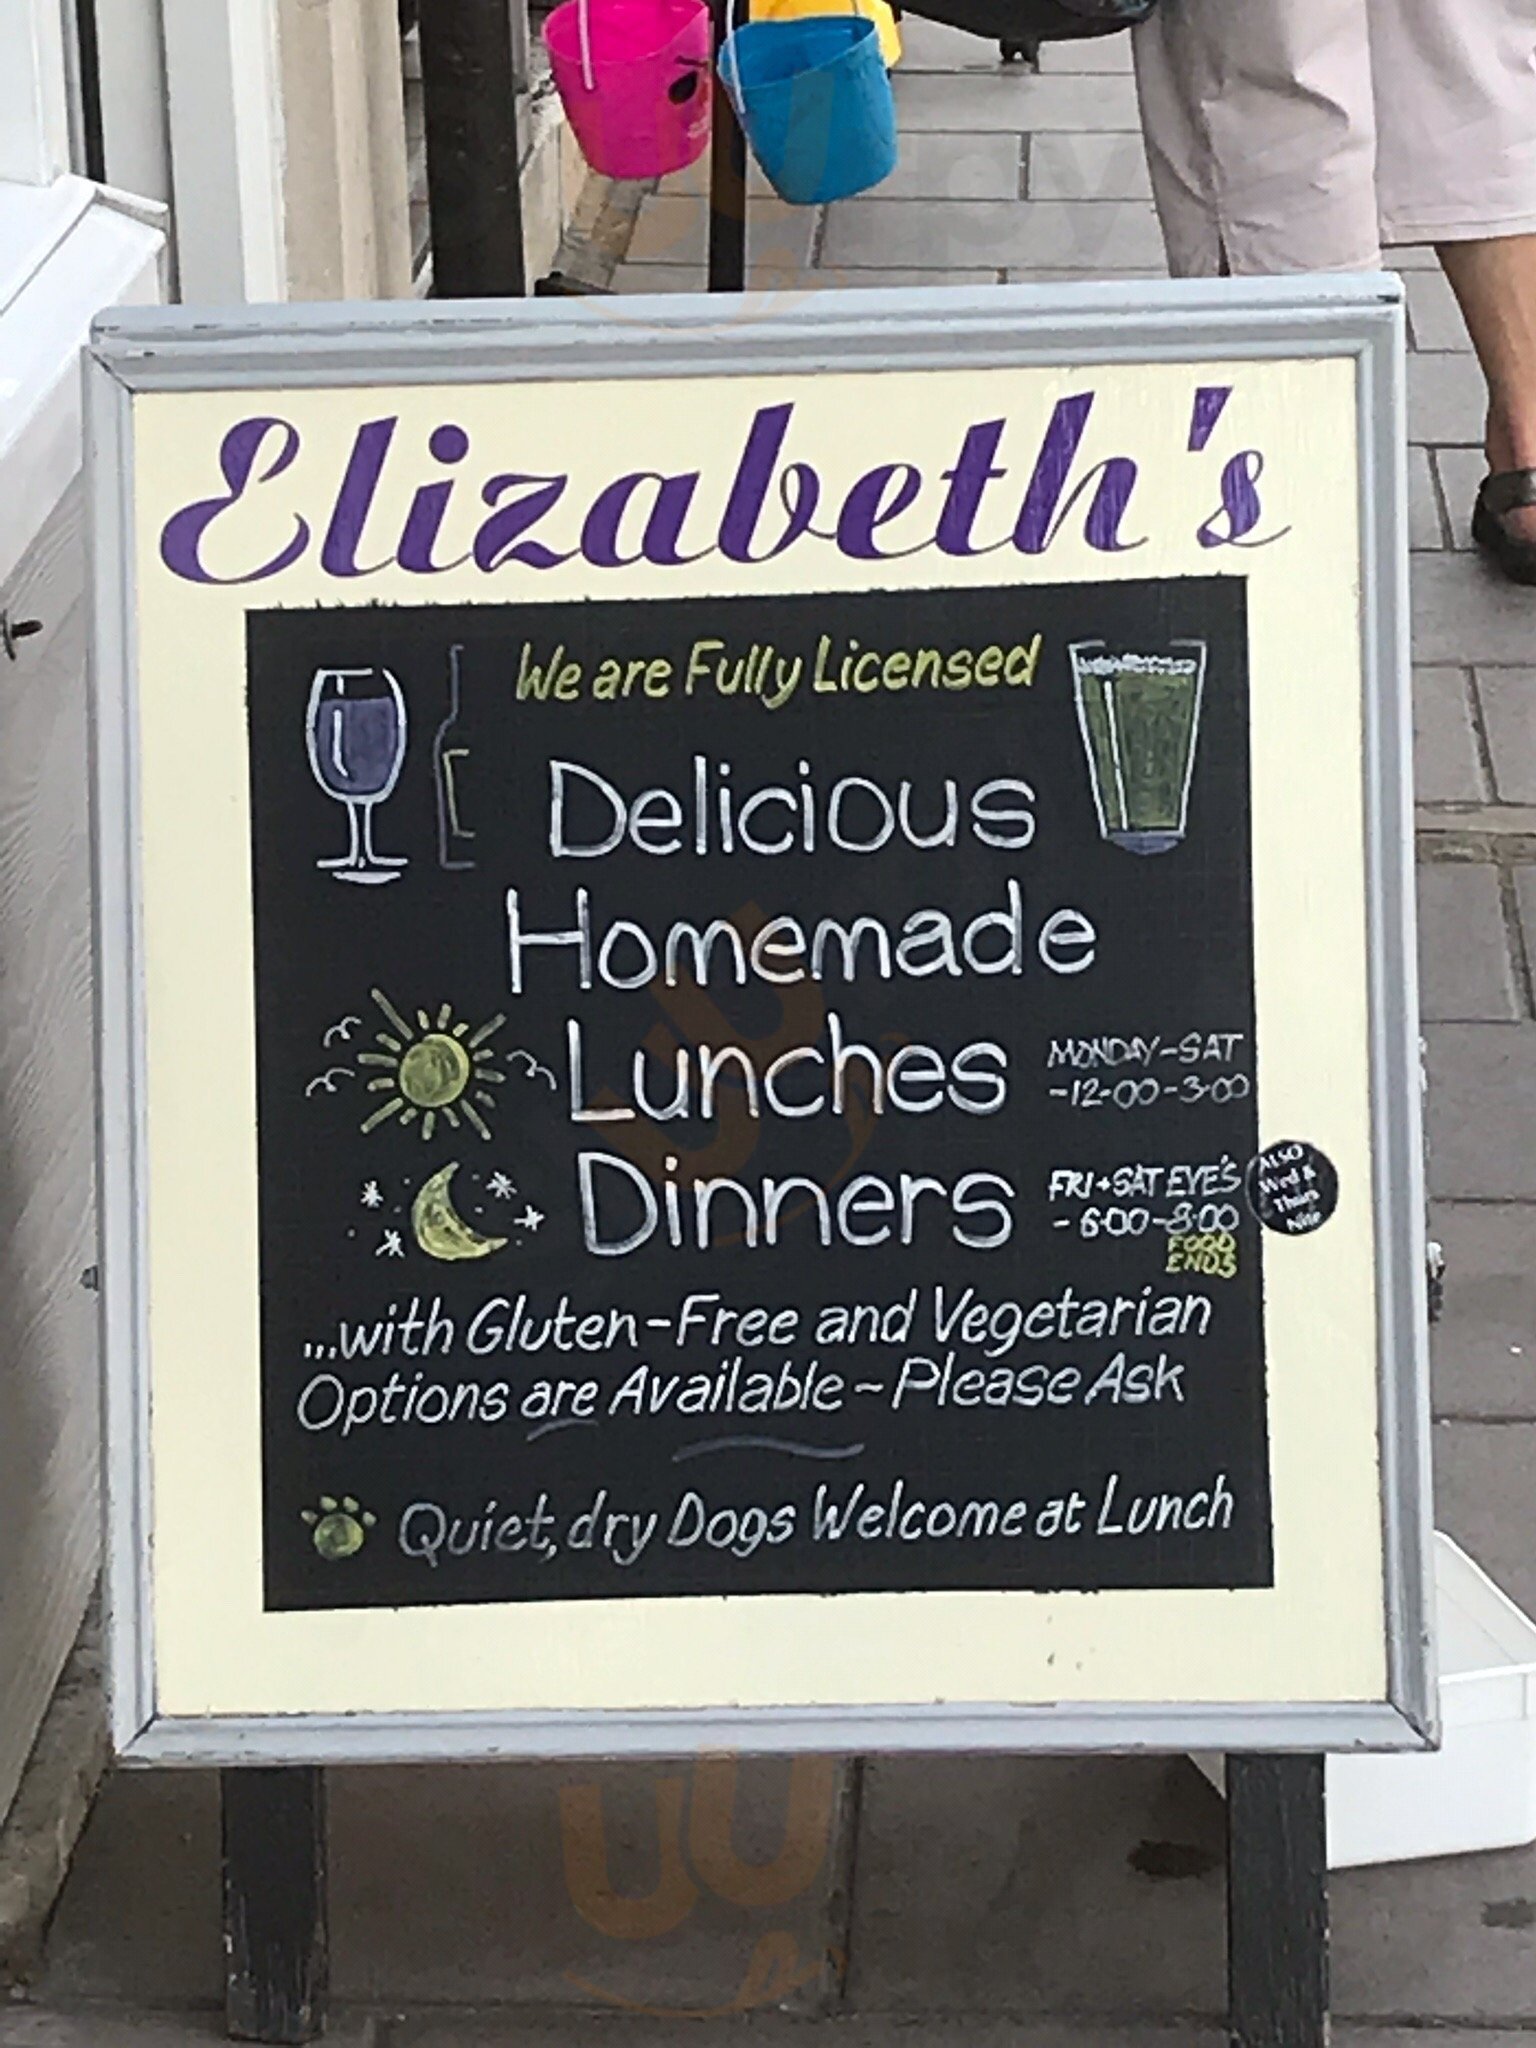 Elizabeth's
We are Fully Licensed
Delicious
Homemade
Lunches
MONDAY-SAT
-12-00-3-00
Dinners
FRI+SAT EVE'S
- 6-00-8-00
FOOD
ENDS
ALSO
Wed &
Thurs
Nite
...with Gluten-Free and Vegetarian
Options are Available~Please Ask
Quiet, dry Dogs Welcome at Lunch